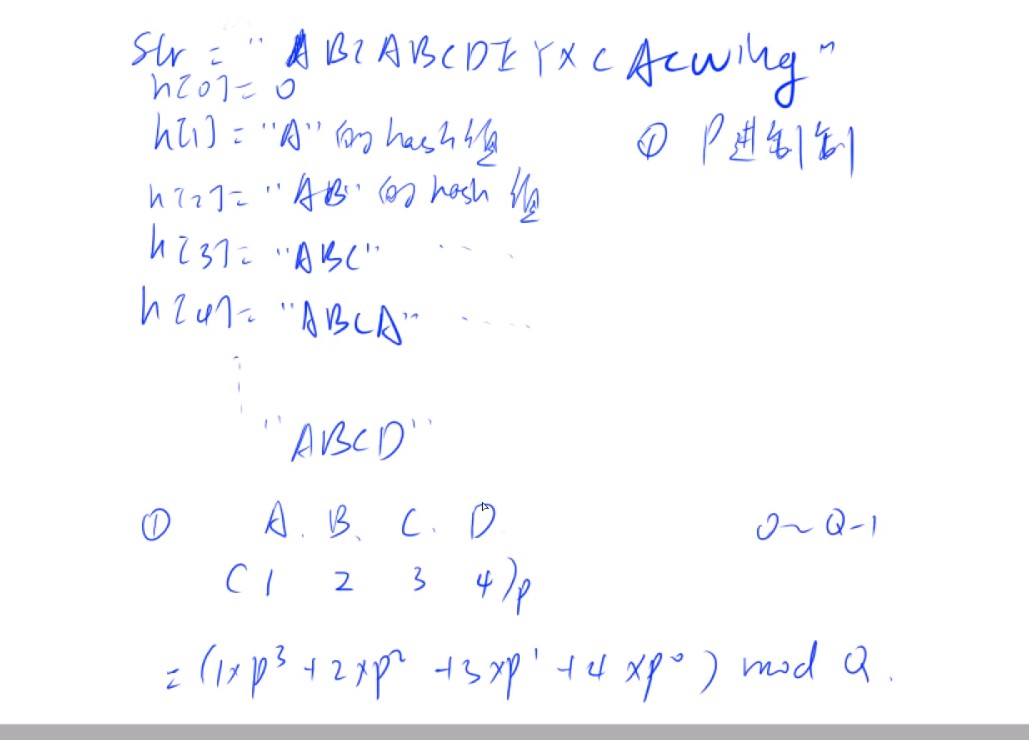 str = "ABCABCDEYXCAcwing"
h[0] = 0
h[1] = "A" 的 hash 值
① P进制
h[2] = "AB" 的 hash 值
h[3] = "ABC" ....
h[4] = "ABCA" ....
"ABCD"
① A. B. C. D
0 ~ Q-1
(1 2 3 4)p
= (1×p³ + 2×p² + 3×p¹ + 4×p⁰) mod Q.